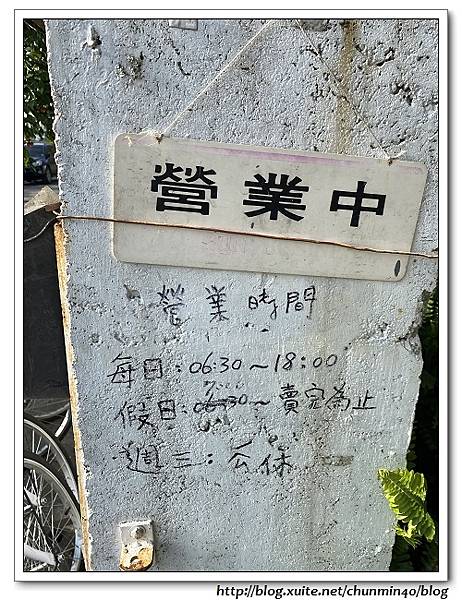 營業中
營業時間
每日：06:30～18:00
假日：06:30～賣完為止
週三：公休
http://blog.xuite.net/chunmin40/blog